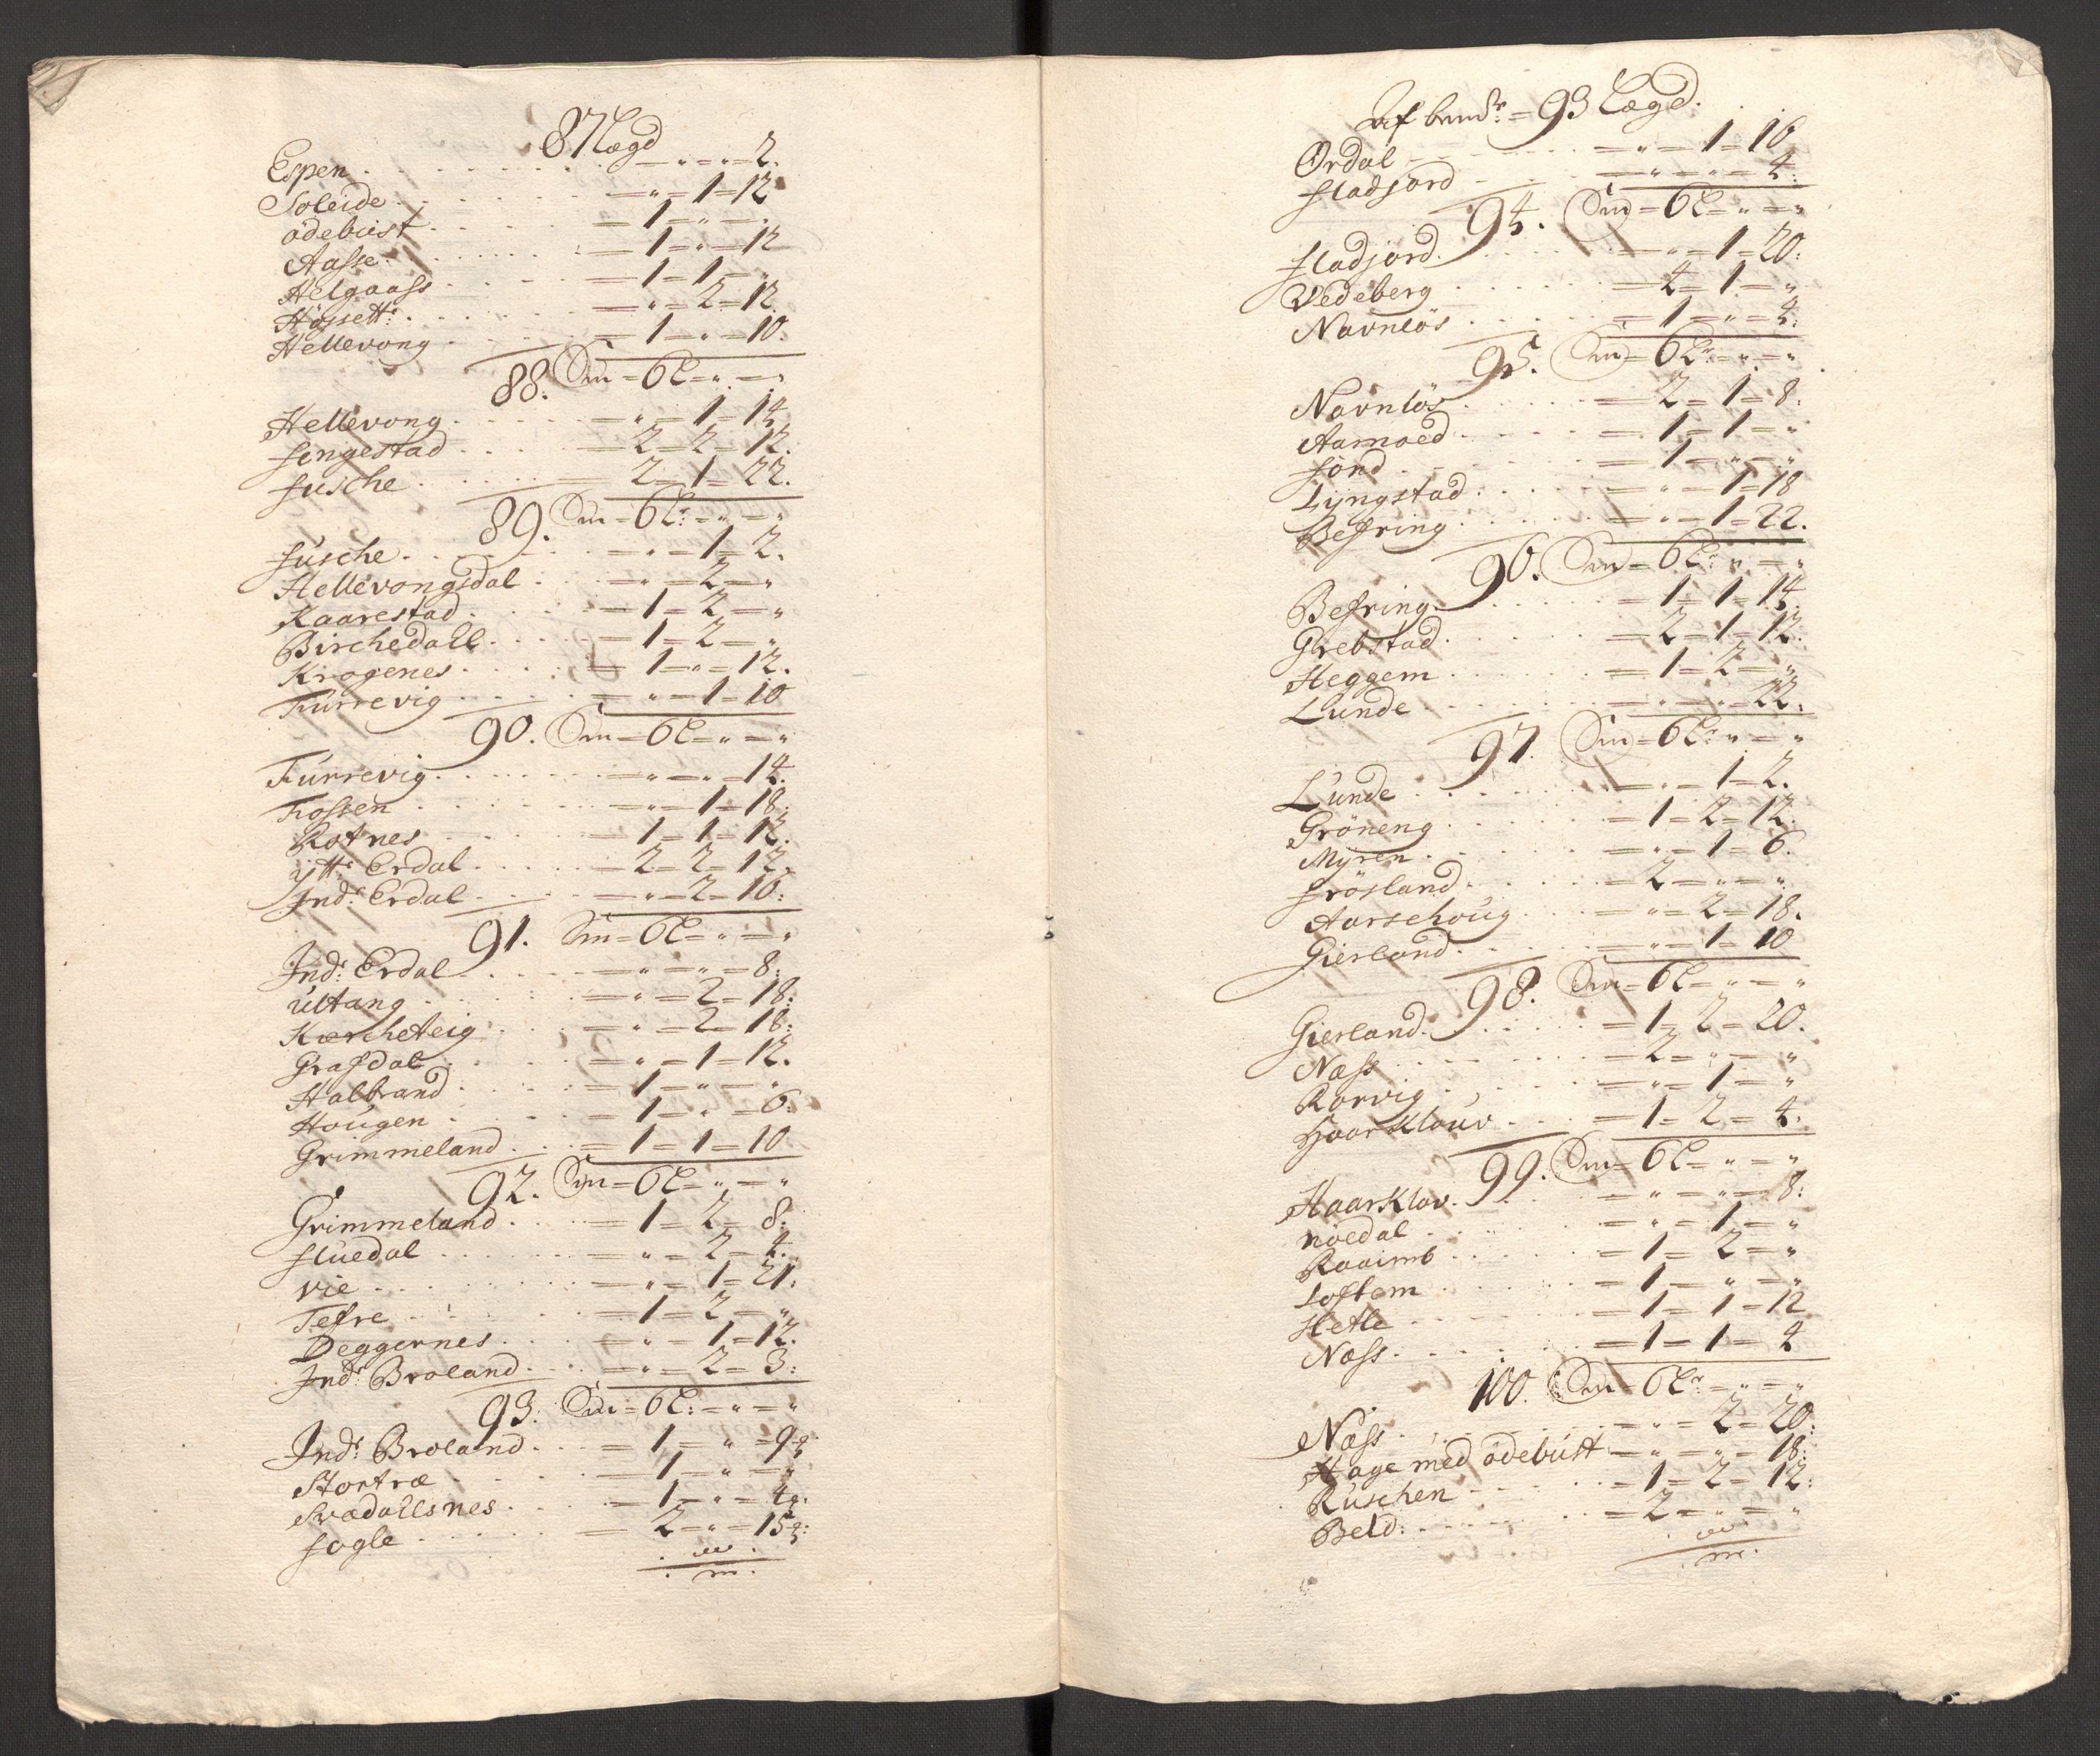 87 Lægd
Espen . . . . . . . — " — " — 2.
Soleide . . . . . — " — 1 — 12
ödebust . . . . — 1 — " — "
Aasse . . . . . . — 1 — " — 12
Helgaass . . . — 1 — 1 — "
Höjsett: . . . . — " — 2 — 12.
Hellevong . . . — 1 — " — 10.
88. Sm = 6 L — " — "
Hellevong . . . — " — 1 — 14
Sengestad . . . — 2 — 2 — 12.
Susche . . . . . 2 — 1 — 22.
89. Sm = 6 L: — " — "
Susche . . . . . — " — 1 — 2.
Hellevongsdal . — " — 2 — "
Kaarestad . . . — 1 — 2 — "
Birchedall . . . — 1 — 2 — "
Krogenes . . . . — 1 — " — 12.
Furrevig . . . . — " — 1 — 10
90. Sm = 6 L — " — "
Furrevig . . . . — " — " — 14.
Fossen . . . . . — " — 1 — 18:
Rotnes . . . . . — 1 — 1 — 12.
ytt: Erdal . . . . — 2 — 2 — 12.
Ind: Erdal . . . . — " — 2 — 16:
91. Sm = 6 L — " — "
Ind: Erdal . . . . — " — " — 8:
Ultang . . . . . — " — 2 — 18:
Kærcheteig . . . — " — 2 — 18:
Grafdal . . . . . — " — 1 — 12.
Halbrand . . . . — 1 — " — "
Hougen . . . . . — 1 — " — 6:
Grimmeland . . . — 1 — 1 — 10
92. Sm = 6 L — " — "
Grimmeland . . . — 1 — 2 — 8:
Sluedal . . . . . — " — 2 — 4.
vie . . . . . . . — " — 1 — 21:
Tefre . . . . . . — 1 — 2 — "
Deggernes . . . . — " — 1 — 12.
Ind: Broland . . . — " — 2 — 3:
93. Sm = 6 L: — " — "
Ind: Broland . . . — 1 — " — 9
Stortræ . . . . . — 1 — " — "
Svædallsnes . . . — 1 — " — 4
Sogle . . . . . . — 2 — " — 15
Af bem:te = 93 Lægd.
Ordal . . . . . — " — 1 — 16
Sladjord . . . . — " — " — 4:
94. Sm = 6 L — " — "
Sladjord . . . . — " — 1 — 20:
Vedeberg . . . . — 4 — 1 — "
Navnlös . . . . — 1 — " — 4:
95. Sm = 6 L: — " — "
Navnlös . . . . — 2 — 1 — 8:
Aamoed . . . . — 1 — 1 — "
Sönd . . . . . . — 1 — " — "
Lyngstad . . . . — " — 1 — 18
Befring . . . . . — " — 1 — 22.
96. Sm = 6 L: " — "
Befring . . . . . — 1 — 1 — 14.
Grebstad . . . . — 2 — 1 — 12.
Heggem . . . . . — 1 — 2 — "
Lunde . . . . . . — " — " — 22.
97. Sm = 6 L: " — "
Lunde . . . . . . — " — 1 — 2.
Gröneng . . . . — 1 — 2 — 12.
Myren . . . . . — " — 1 — 6.
Frösland . . . . — 2 — " — "
Aarsehoug . . . — " — 2 — 18.
Gierland . . . . — " — 1 — 10
98. Sm = 6 L — " — "
Gierland . . . . — 1 — 2 — 20.
Næss . . . . . . — 2 — " — "
Rorvig . . . . . — " — 1 — "
Haarklouv . . . — 1 — 2 — 4.
99. Sm = 6 L — " — "
Haarklov . . . . — " — " — 8:
nöedal . . . . . — " — 1 — "
Raaimb . . . . . — 1 — 2 — "
Loftem . . . . . — 1 — " — "
Hetle . . . . . . — 1 — 1 — 12
Næss . . . . . . — 1 — 1 — 4
100. Sm = 6 L: — " — "
Næss . . . . . . — " — 2 — 20:
Hage med ödebust — " — " — 18:
Ruschen . . . . — 1 — 2 — 12:
Beld: . . . . . . — 2 — " — "